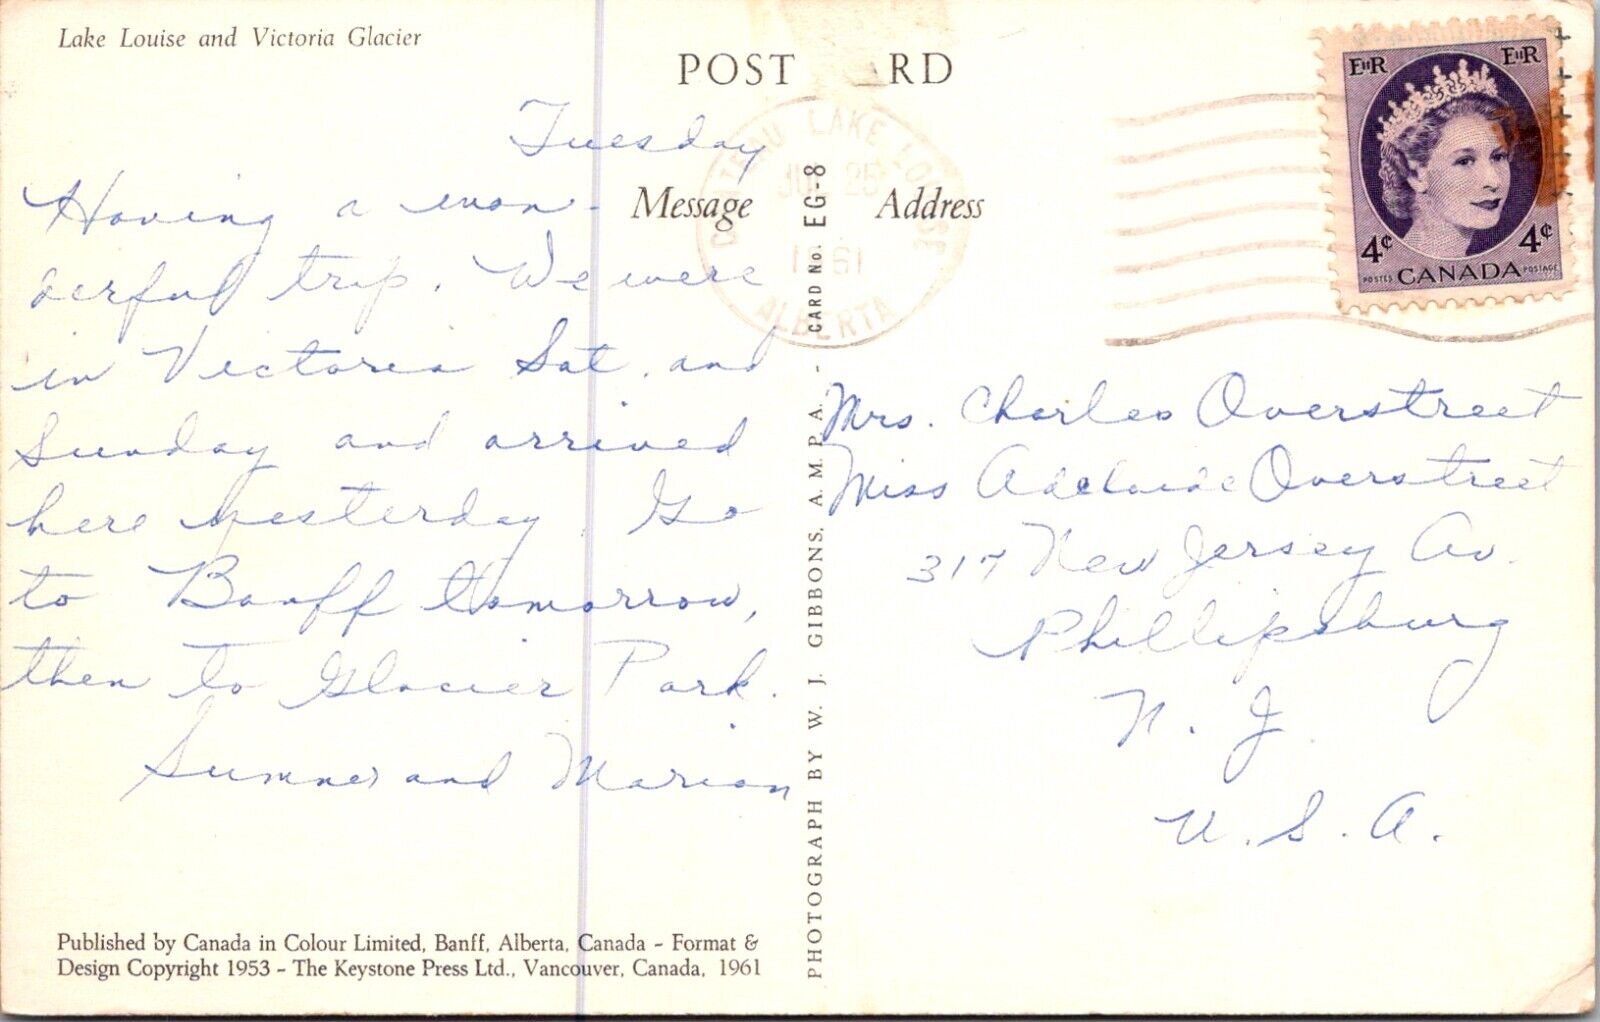 Lake Louise and Victoria Glacier
POST RD
CHATEAU LAKE LOUISE
JUL 25
1961
ALBERTA
EⅡR EⅡR
4¢ 4¢
POSTES CANADA POSTAGE
Message
Address
Tuesday
Having a won-
derful trip. We were
in Victoria Sat. and
Sunday and arrived
here yesterday. Go
to Banff tomorrow,
then to Glacier Park.
Sumner and Marion
PHOTOGRAPH BY W. J. GIBBONS, A. M. P. A. - CARD No. EG-8
Mrs. Charles Overstreet
Miss Adelaide Overstreet
317 New Jersey Av.
Phillipsburg
N. J.
U. S. A.
Published by Canada in Colour Limited, Banff, Alberta, Canada - Format &
Design Copyright 1953 - The Keystone Press Ltd., Vancouver, Canada, 1961